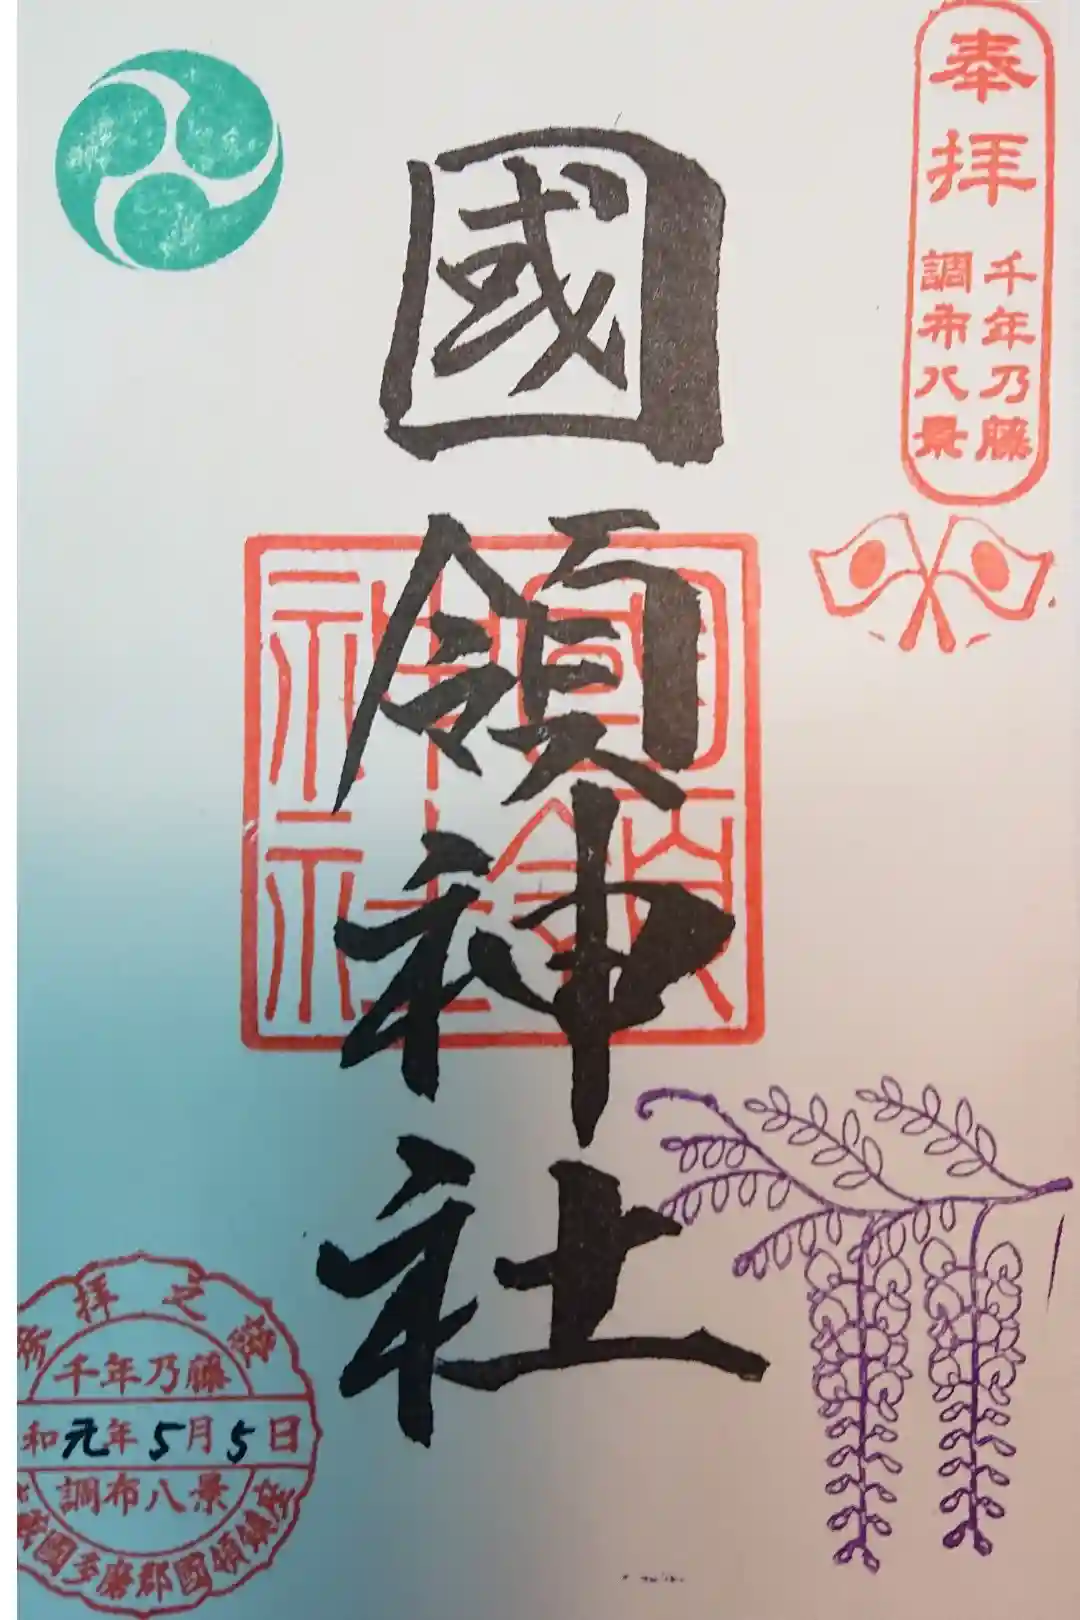 奉拝
千年乃藤
調布八景
國領神社
國領
神社
拝之
千年乃藤
和元年5月5日
調布八景
國多磨郡國領鎮座